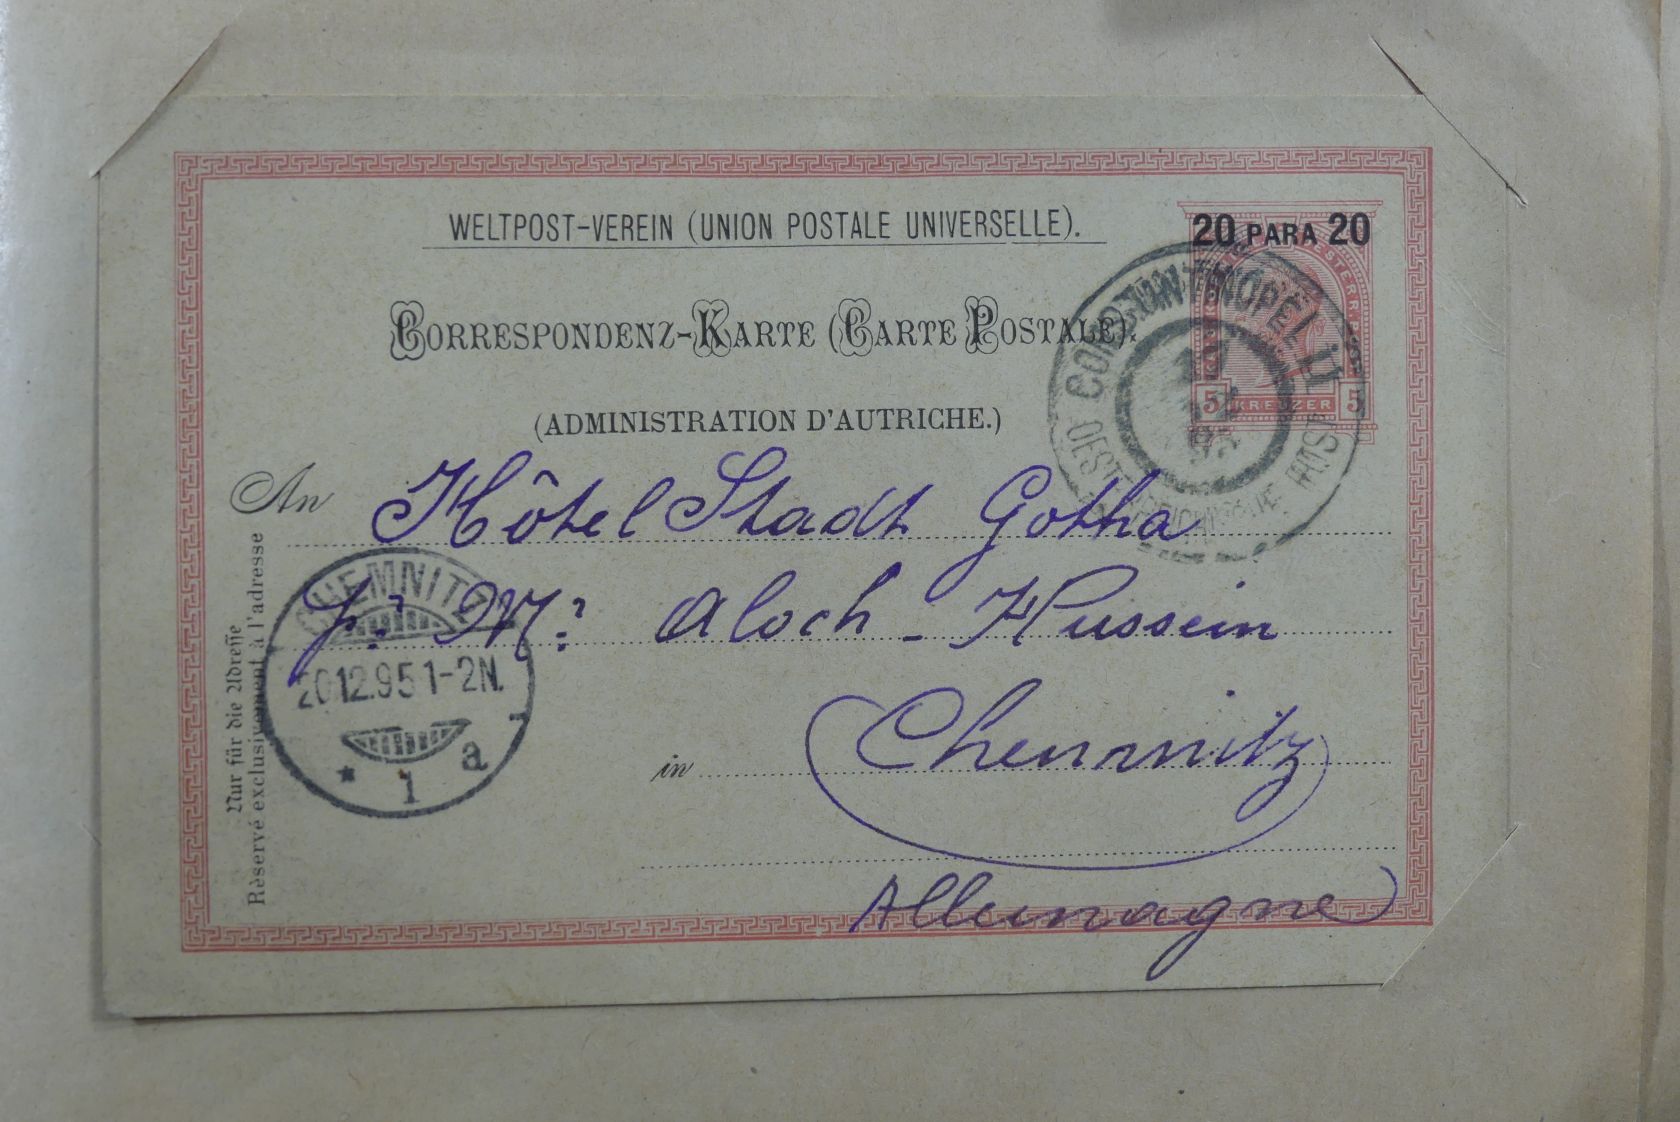 WELTPOST-VEREIN (UNION POSTALE UNIVERSELLE).
20 PARA 20
CORRESPONDENZ-KARTE (CARTE POSTALE).
5 KREUZER 5
(ADMINISTRATION D'AUTRICHE.)
An Hôtel Stadt Gotha
Aloch - Hussein
in Chemnitz
Allemagne
Nur für die Adresse
Réservé exclusivement à l'adresse
CHEMNITZ
20.12.95 1-2N.
* 1 a